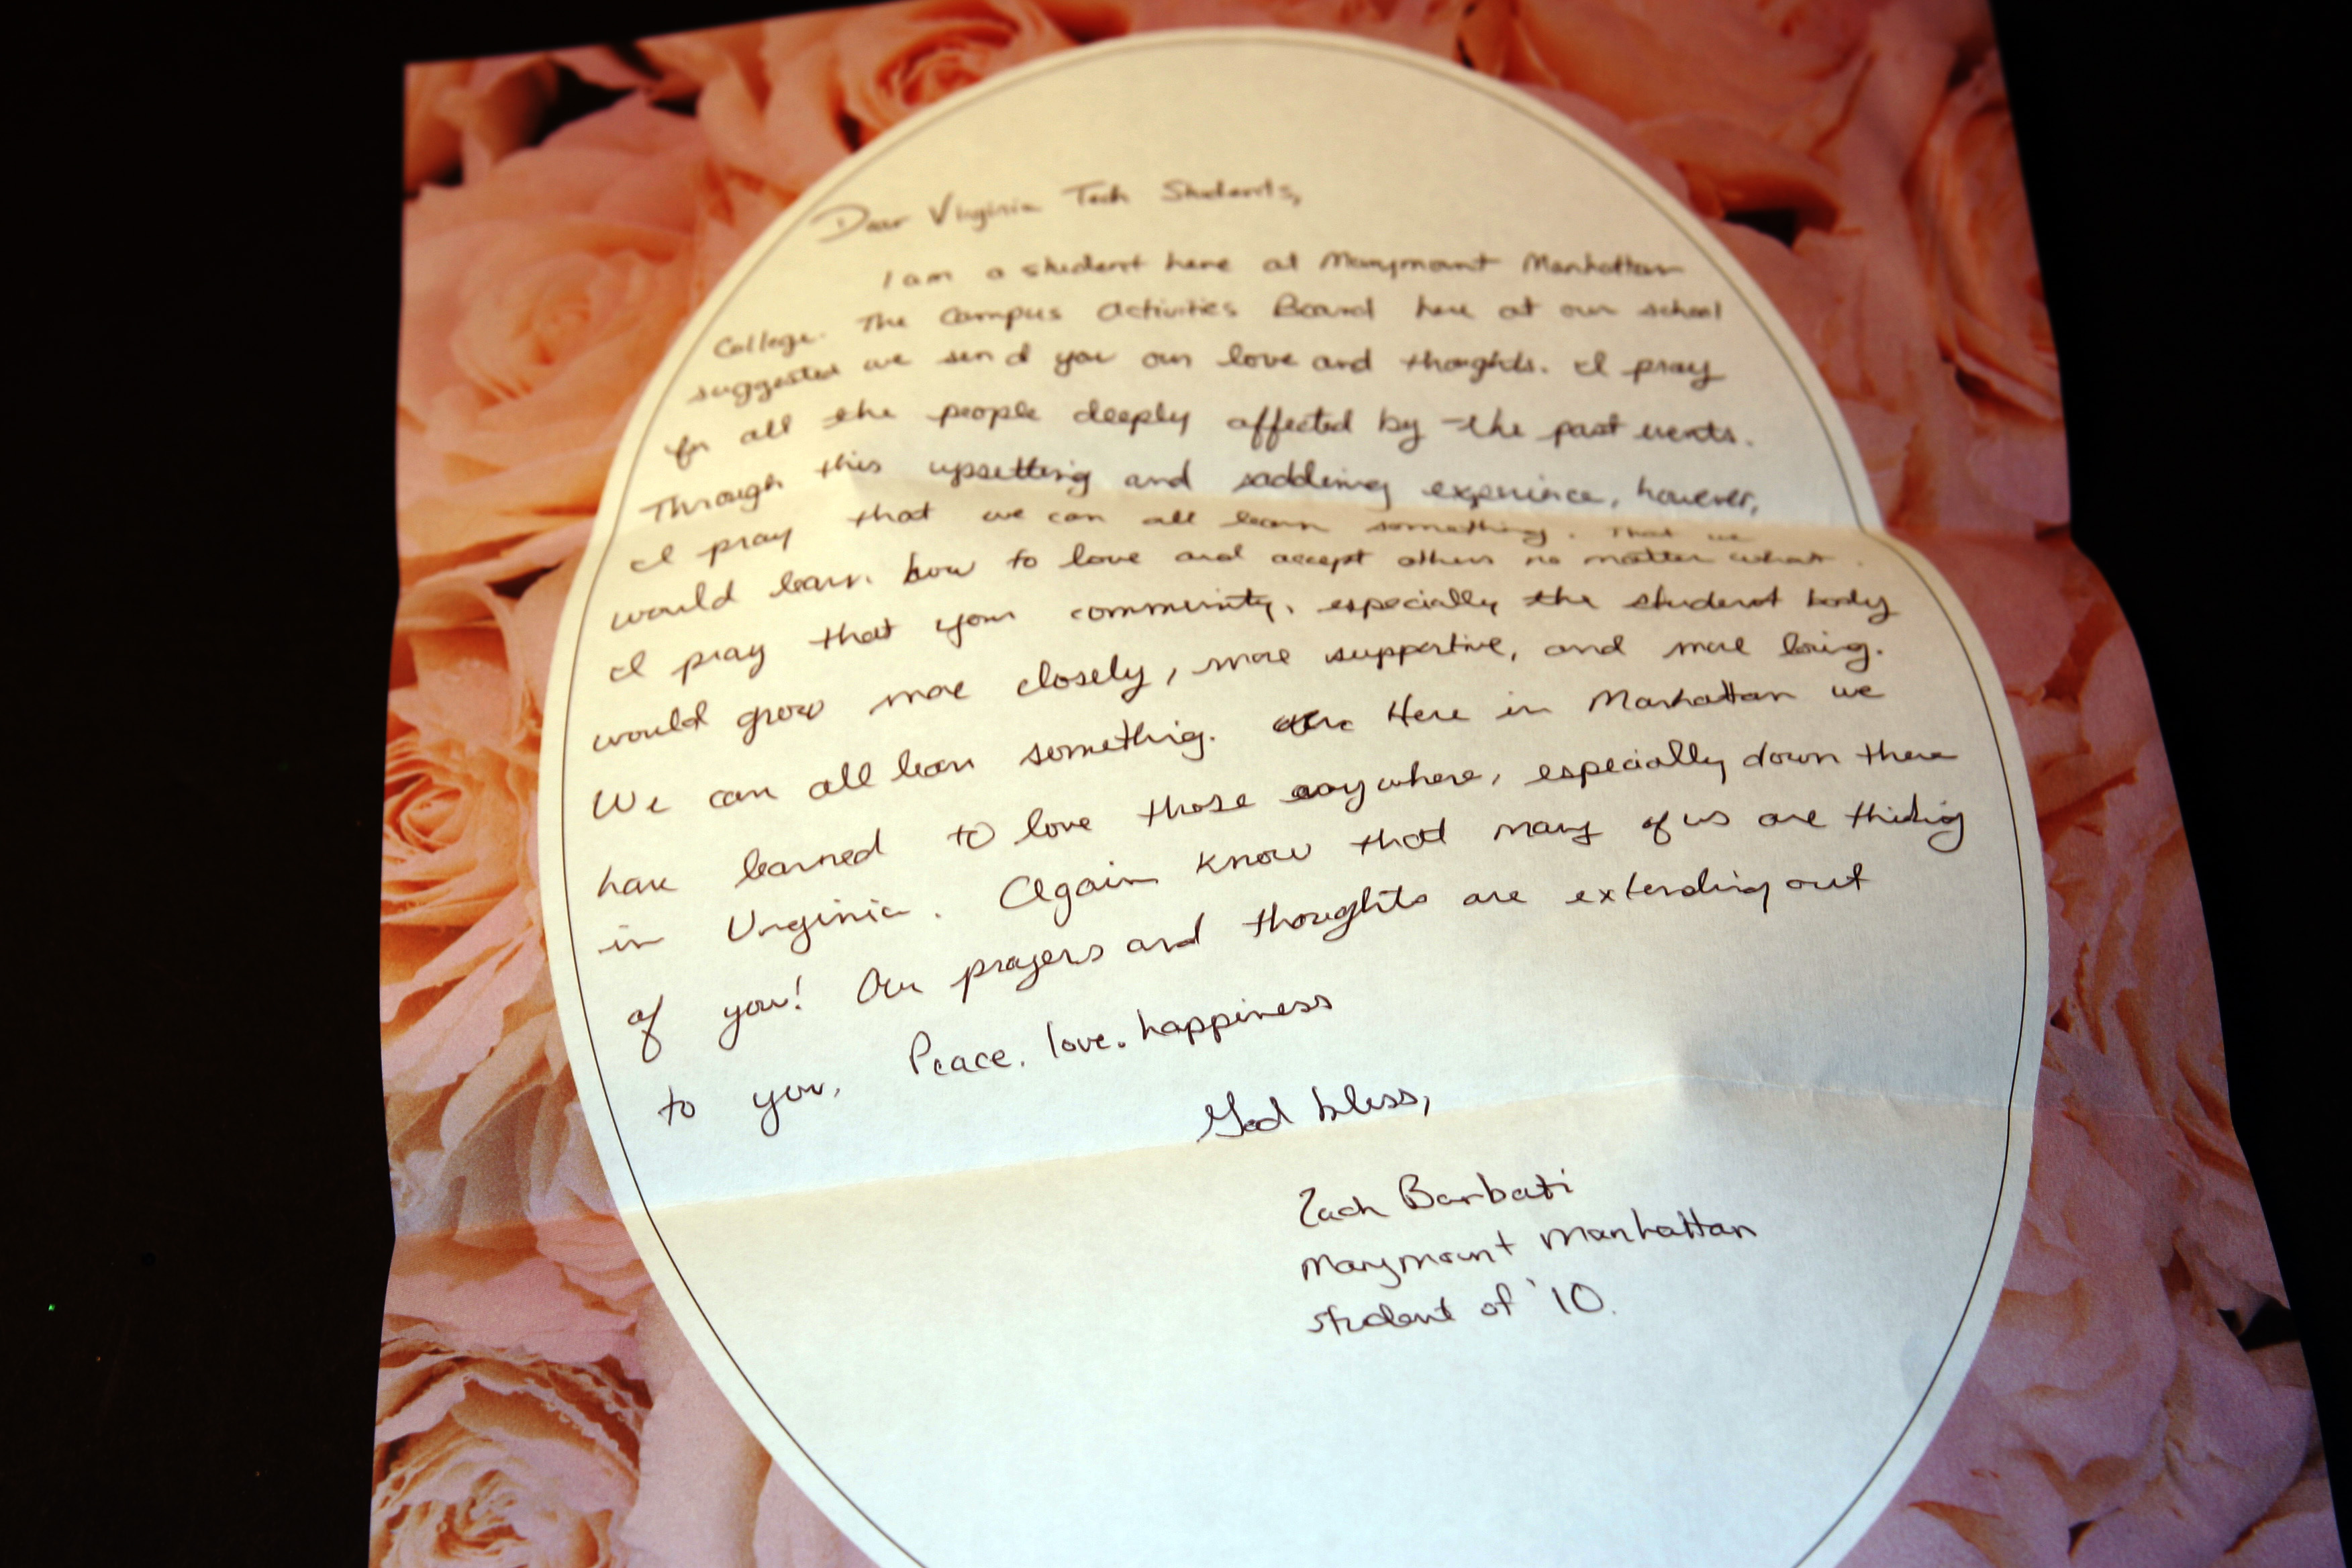 Dear Virginia Tech Students,
I am a student here at Marymount Manhattan
College. The Campus Activities Board here at our school
suggested we send you our love and thoughts. I pray
for all the people deeply affected by the past events.
Through this upsetting and saddening experience, however,
I pray that we can all learn something. That we
would learn how to love and accept others no matter what.
I pray that your community, especially the student body
would grow more closely, more supportive, and more loving.
We can all learn something. Here in Manhattan we
have learned to love those anywhere, especially down there
in Virginia. Again know that many of us are thinking
of you! Our prayers and thoughts are extending out
to you. Peace. love. happiness
God bless,
Zach Barbati
Marymount Manhattan
student of '10.